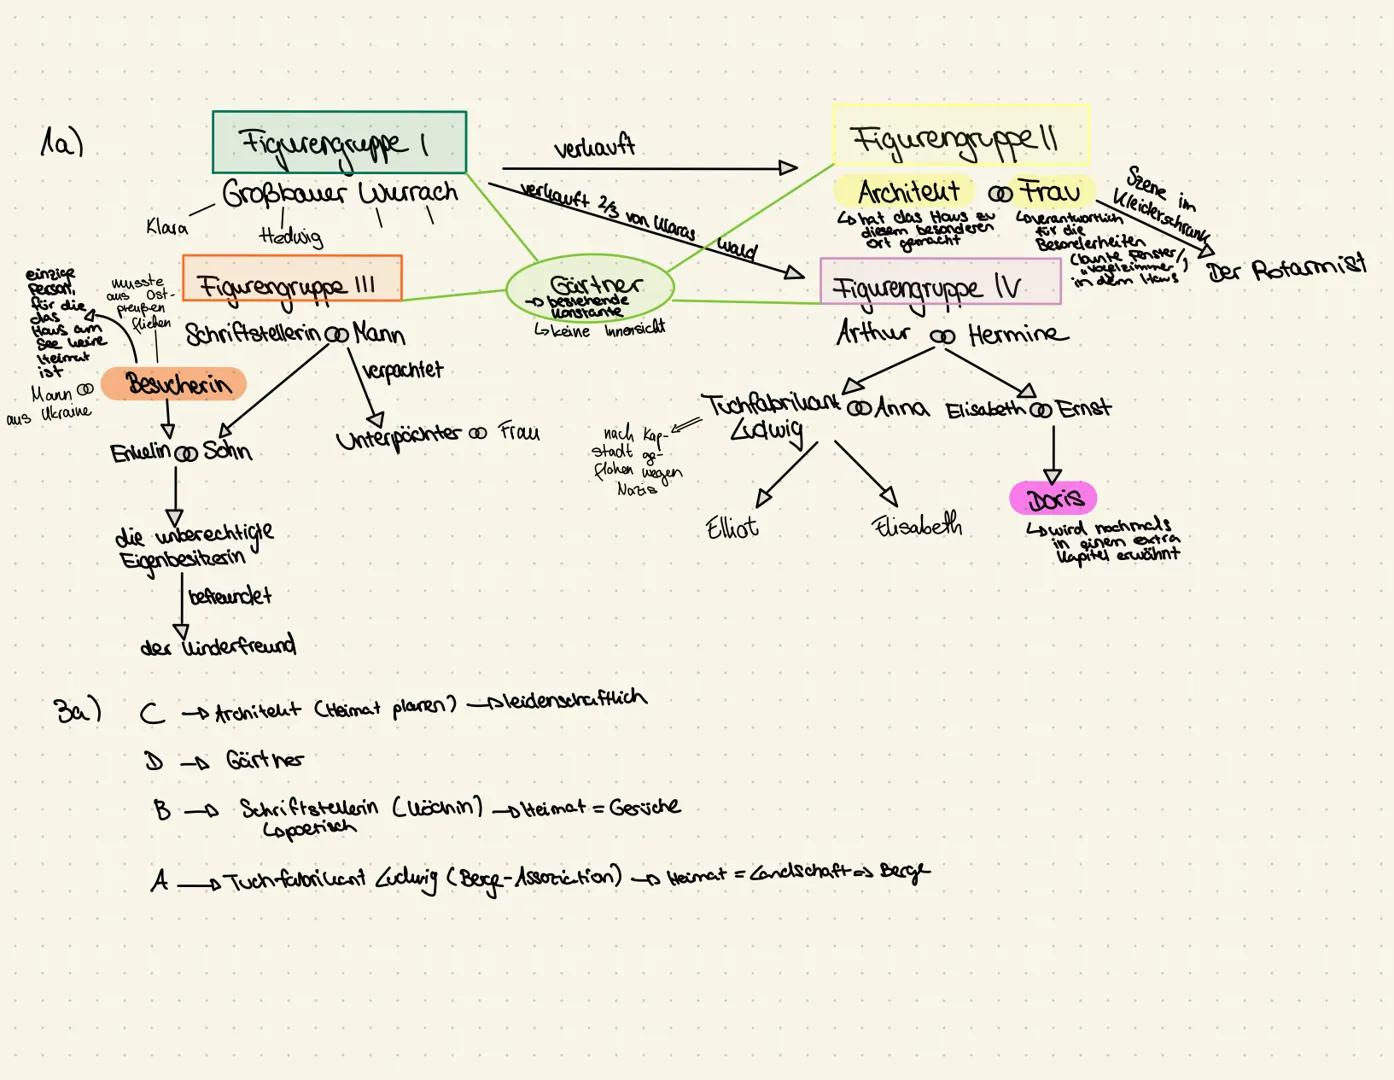 1a)
Figurengruppe I
verkauft
Figurengruppe II
Großbauer Wurrach
Klara
Hedwig
verkauft 2/3 von Klaras Wald
Architekt ⚭ Frau
↳ hat das Haus zu
diesem besonderen
Ort gemacht
↳ verantwortlich
für die
Besonderheiten
(bunte Fenster,
"Vogelzimmer")
in dem Haus
Szene im
Kleiderschrank
Der Rotarmist
Figurengruppe III
Gärtner
→ bestehende
Konstante
↳ keine Innensicht
Figurengruppe IV
einzige
Person,
für die
das
Haus am
See keine
Heimat
ist
musste
aus Ost-
preußen
fliehen
Schriftstellerin ⚭ Mann
verpachtet
Besucherin
Mann ⚭
aus Ukraine
Enkelin ⚭ Sohn
Unterpächter ⚭ Frau
die unberechtigte
Eigenbesitzerin
befreundet
der Kinderfreund
Arthur ⚭ Hermine
Tuchfabrikant ⚭ Anna
Ludwig
Elisabeth ⚭ Ernst
nach Kap-
stadt ge-
flohen wegen
Nazis
Elliot
Elisabeth
Doris
↳ wird nochmals
in einem extra
Kapitel erwähnt
3a)
C → Architekt (Heimat planen) → leidenschaftlich
D → Gärtner
B → Schriftstellerin (Köchin) → Heimat = Gerüche
↳ poetisch
A → Tuchfabrikant Ludwig (Berge-Assoziation) → Heimat = Landschaft → Berge